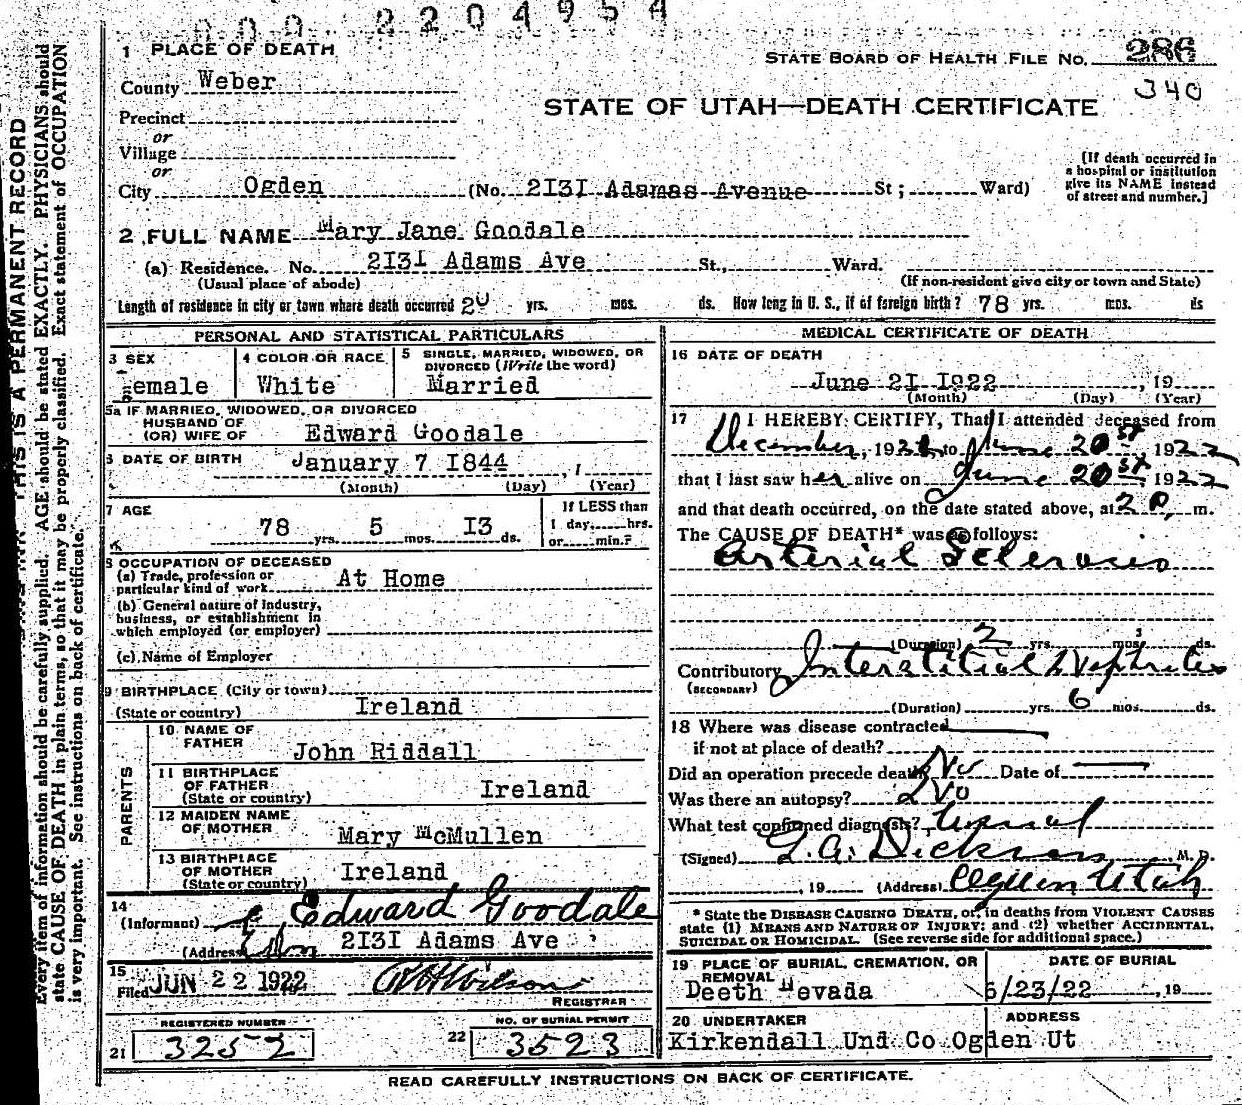 000 2204954
1 PLACE OF DEATH
STATE BOARD OF HEALTH FILE NO. 286
County Weber
340
STATE OF UTAH—DEATH CERTIFICATE
Precinct
or
Village
or
City Ogden (No. 2131 Adamas Avenue St; Ward)
[If death occurred in
a hospital or institution
give its NAME instead
of street and number.]
2 FULL NAME Mary Jane Goodale
(a) Residence. No. 2131 Adams Ave St., Ward.
(Usual place of abode) (If non-resident give city or town and State)
Length of residence in city or town where death occurred 20 yrs. mos. ds. How long in U. S., if of foreign birth? 78 yrs. mos. ds
PERSONAL AND STATISTICAL PARTICULARS
3 SEX
emale
4 COLOR OR RACE
White
5 SINGLE, MARRIED, WIDOWED, OR
DIVORCED (Write the word)
Married
5a IF MARRIED, WIDOWED, OR DIVORCED
HUSBAND OF
(OR) WIFE OF Edward Goodale
6 DATE OF BIRTH January 7 1844
(Month) (Day) (Year)
7 AGE
78 yrs. 5 mos. 13 ds.
If LESS than
1 day, hrs.
or min.?
8 OCCUPATION OF DECEASED
(a) Trade, profession or
particular kind of work At Home
(b) General nature of industry,
business, or establishment in
which employed (or employer)
(c) Name of Employer
9 BIRTHPLACE (City or town)
(State or country) Ireland
PARENTS
10 NAME OF
FATHER John Riddall
11 BIRTHPLACE
OF FATHER
(State or country) Ireland
12 MAIDEN NAME
OF MOTHER Mary McMullen
13 BIRTHPLACE
OF MOTHER
(State or country) Ireland
14
(Informant) Edward Goodale
(Address) 2131 Adams Ave
15
Filed JUN 22 1922 Wilson
REGISTRAR
REGISTERED NUMBER
21 3252
NO. OF BURIAL PERMIT
22 3523
MEDICAL CERTIFICATE OF DEATH
16 DATE OF DEATH
June 21 1922, 19
(Month) (Day) (Year)
17 I HEREBY CERTIFY, That I attended deceased from
December, 192 to June 20st 1922
that I last saw her alive on June 20st 1922
and that death occurred, on the date stated above, at 2 P. m.
The CAUSE OF DEATH* was as follows:
Arterial Sclerosis
(Duration) 2 yrs. mos. ds.
Contributory Interstitial Nephritis
(SECONDARY)
(Duration) yrs. 6 mos. ds.
18 Where was disease contracted
if not at place of death?
Did an operation precede death? No Date of
Was there an autopsy? No
What test confirmed diagnosis?
(Signed) M. D.
, 19 (Address) Ogden Utah
* State the DISEASE CAUSING DEATH, or, in deaths from VIOLENT CAUSES
state (1) MEANS AND NATURE OF INJURY; and (2) whether ACCIDENTAL,
SUICIDAL OR HOMICIDAL. (See reverse side for additional space.)
19 PLACE OF BURIAL, CREMATION, OR
REMOVAL
Deeth Nevada
DATE OF BURIAL
6/23/22, 19
20 UNDERTAKER
Kirkendall Und Co Ogden Ut
ADDRESS
READ CAREFULLY INSTRUCTIONS ON BACK OF CERTIFICATE.
THIS IS A PERMANENT RECORD
Every item of information should be carefully supplied. AGE should be stated EXACTLY. PHYSICIANS should
state CAUSE OF DEATH in plain terms, so that it may be properly classified. Exact statement of OCCUPATION
is very important. See instructions on back of certificate.